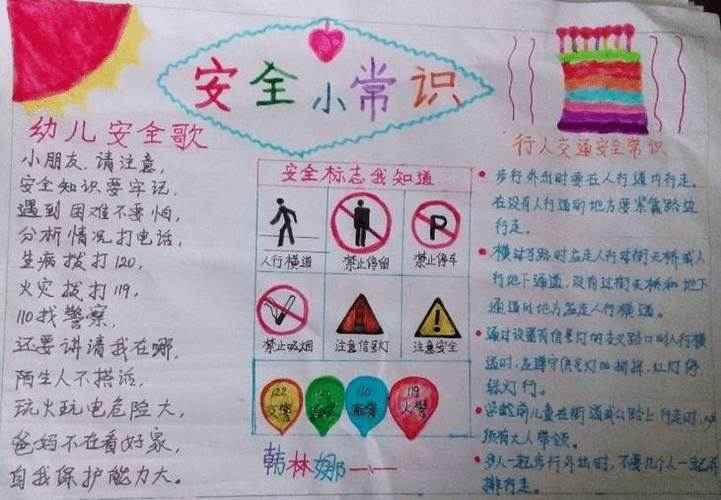 安全小常识
幼儿安全歌
小朋友.请注意,
安全知识要牢记.
遇到困难不要怕,
分析情况打电话,
生病拨打120,
火灾拨打119,
110找警察,
还要讲清我在哪,
陌生人不搭话,
玩火玩电危险大,
爸妈不在看好家,
自我保护能力大。
安全标志我知道
人行横道
禁止停留
禁止停车
P
禁止吸烟
注意信号灯
注意安全
122
交警
120
110
119
火警
韩林娜
行人交通安全常识
步行外出时要在人行道内行走。
在没有人行道的地方要紧靠路边
行走。
横过马路时应走人行过街天桥或人
行地下通道,没有过街天桥和地下
通道的地方应走人行横道。
通过设置有信号灯的交叉路口的人行横
道时,应遵守信号灯的指挥,红灯停
绿灯行。
学龄前儿童在街道或公路上行走时,
须有大人带领。
多人一起步行外出时,不要几个人一起并
排行走。